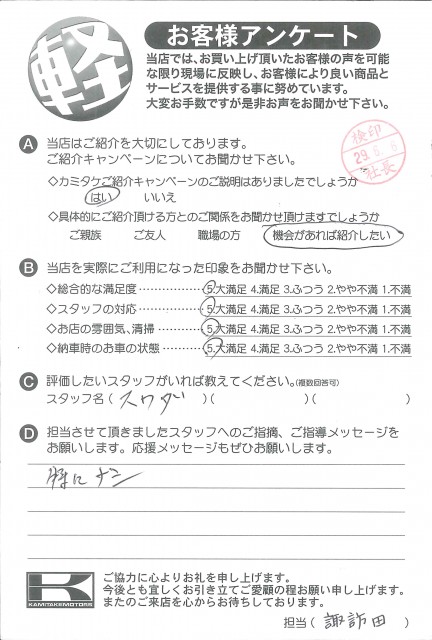 軽
お客様アンケート
当店では、お買い上げ頂いたお客様の声を可能
な限り現場に反映し、お客様により良い商品と
サービスを提供する事に努めています。
大変お手数ですが是非お声をお聞かせ下さい。
検印
29.6.6
社長
A 当店はご紹介を大切にしております。
ご紹介キャンペーンについてお聞かせ下さい。
◇カミタケご紹介キャンペーンのご説明はありましたでしょうか
はい いいえ
◇具体的にご紹介頂ける方とのご関係をお聞かせ頂けますでしょうか
ご親族 ご友人 職場の方 機会があれば紹介したい
B 当店を実際にご利用になった印象をお聞かせ下さい。
◇総合的な満足度 ・・・・・・・・・・・・ 5.大満足 4.満足 3.ふつう 2.やや不満 1.不満
◇スタッフの対応 ・・・・・・・・・・・・ 5.大満足 4.満足 3.ふつう 2.やや不満 1.不満
◇お店の雰囲気、清掃 ・・・・・・・・・ 5.大満足 4.満足 3.ふつう 2.やや不満 1.不満
◇納車時のお車の状態 ・・・・・・・・・ 5.大満足 4.満足 3.ふつう 2.やや不満 1.不満
C 評価したいスタッフがいれば教えてください。(複数回答可)
スタッフ名 ( スワダ )( )( )
D 担当させて頂きましたスタッフへのご指摘、ご指導メッセージを
お願いします。応援メッセージもぜひお願いします。
特にナシ
K
KAMITAKEMOTORS
ご協力に心よりお礼を申し上げます。
今後とも宜しくお引き立てご愛顧の程お願い申し上げます。
またのご来店を心からお待ちしております。
担当 ( 諏訪田 )